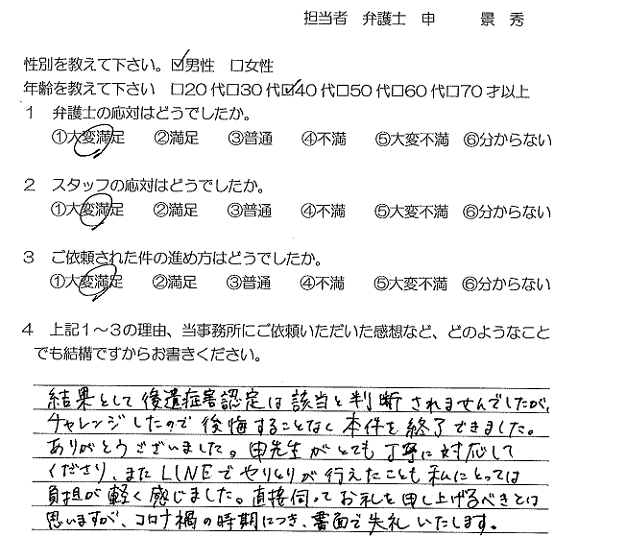 担当者 弁護士 申 景 秀
性別を教えて下さい。☑男性 □女性
年齢を教えて下さい □20代□30代☑40代□50代□60代□70才以上
1 弁護士の応対はどうでしたか。
①大変満足 ②満足 ③普通 ④不満 ⑤大変不満 ⑥分からない
2 スタッフの応対はどうでしたか。
①大変満足 ②満足 ③普通 ④不満 ⑤大変不満 ⑥分からない
3 ご依頼された件の進め方はどうでしたか。
①大変満足 ②満足 ③普通 ④不満 ⑤大変不満 ⑥分からない
4 上記1～3の理由、当事務所にご依頼いただいた感想など、どのようなこと
でも結構ですからお書きください。
結果として後遺症害認定は該当と判断されませんでしたが、
チャレンジしたので後悔することなく本件を終了できました。
ありがとうございました。申先生がとても丁寧に対応して
くださり、またLINEでやりとりが行えたことも私にとっては
負担が軽く感じました。直接伺ってお礼を申し上げるべきとは
思いますが、コロナ禍の時期につき、書面で失礼いたします。